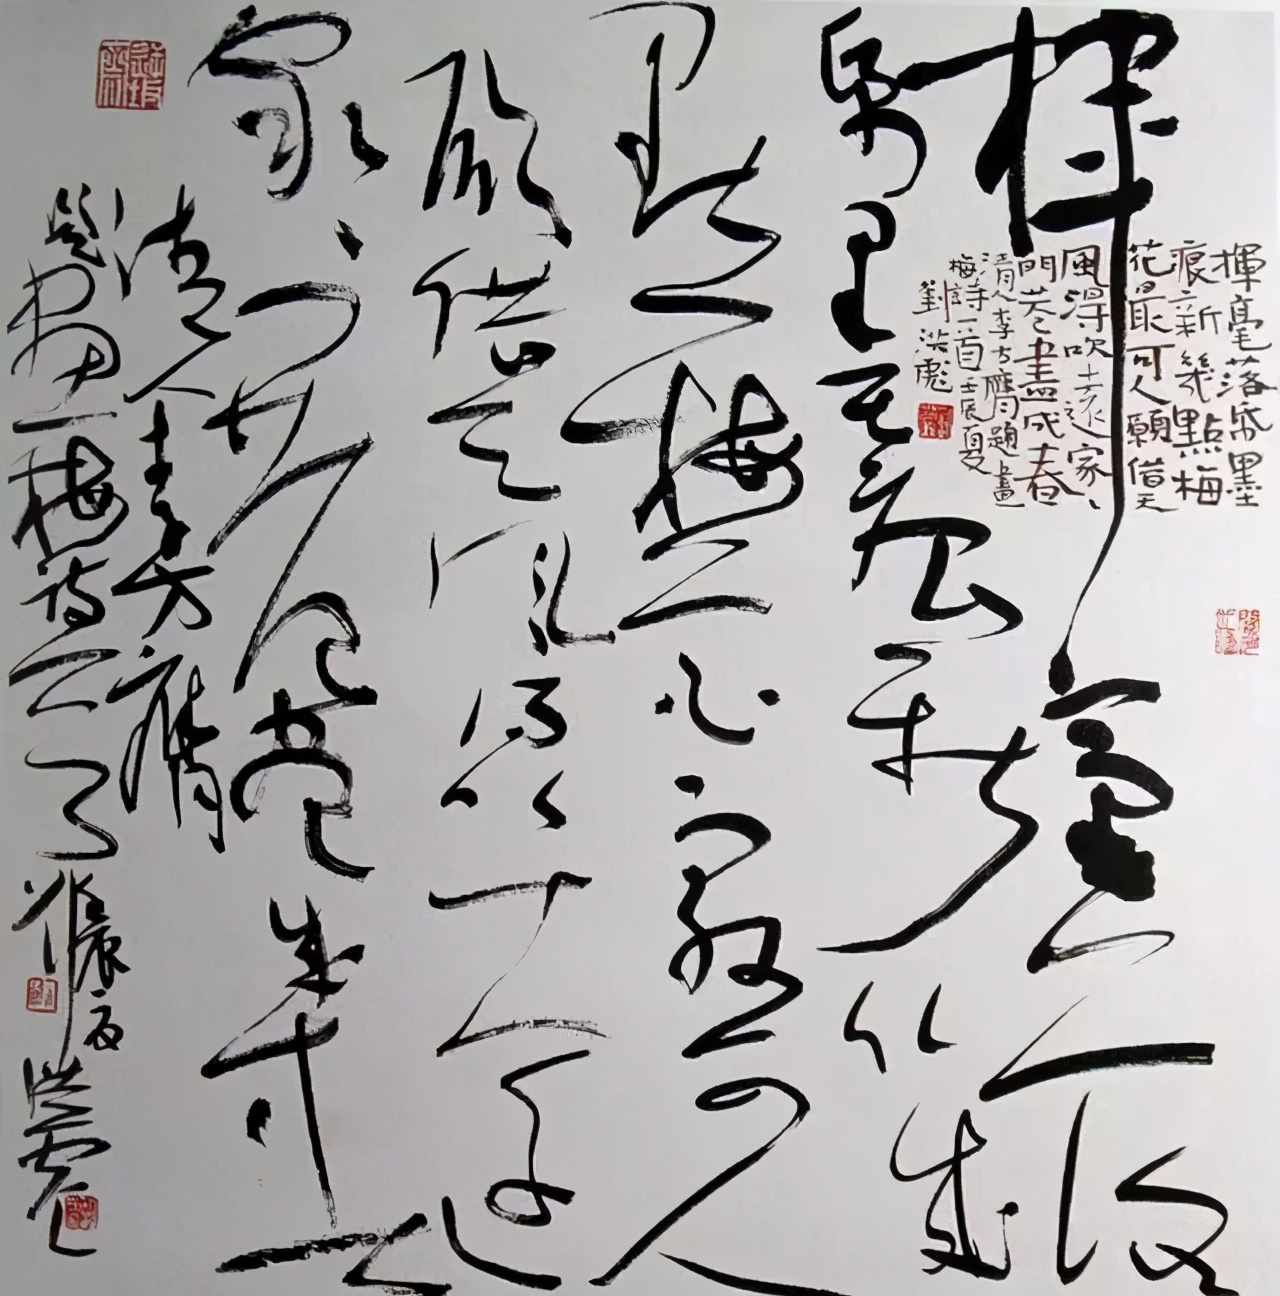 揮毫落
帋墨痕新幾
點梅花最可人
願借天風得吹遠
家、門巷盡成春
清人李方膺
題畫梅詩一首壬辰夏洪彪
揮毫落帋墨
痕新幾點梅
花最可人願借天
風得吹遠家、
門巷盡成春
清人李方膺題畫
梅詩一首壬辰夏
劉洪彪